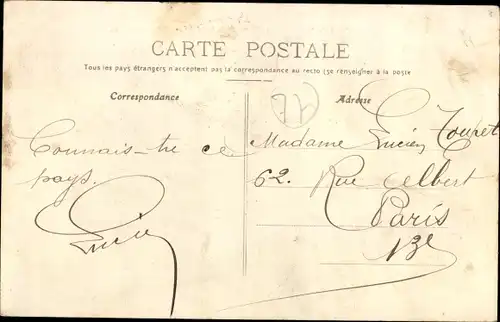 CARTE POSTALE
Tous les pays étrangers n'acceptent pas la correspondance au recto (se renseigner à la poste
Correspondance
Adresse
Connais-tu ce
pays.
Lucien
Madame Lucien Toupet
62. Rue Albert
Paris
13e